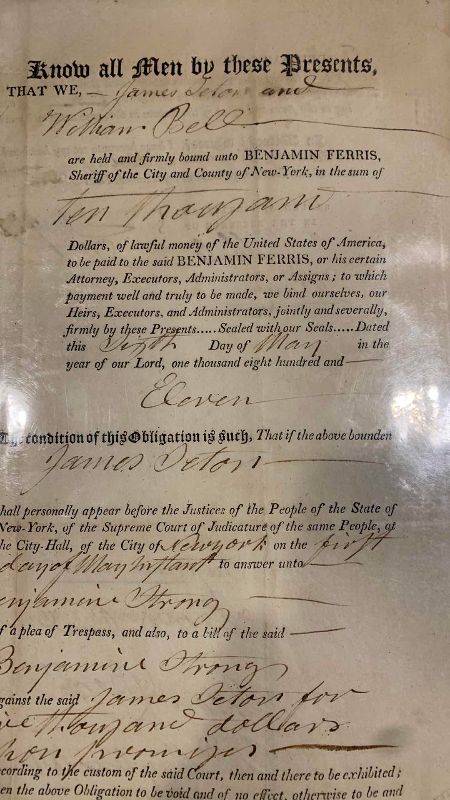 Know all Men by these Presents,
THAT WE, — James Seton and
William Bell
are held and firmly bound unto BENJAMIN FERRIS,
Sheriff of the City and County of New-York, in the sum of
Ten Thousand
Dollars, of lawful money of the United States of America,
to be paid to the said BENJAMIN FERRIS, or his certain
Attorney, Executors, Administrators, or Assigns; to which
payment well and truly to be made, we bind ourselves, our
Heirs, Executors, and Administrators, jointly and severally,
firmly by these Presents.....Sealed with our Seals.....Dated
this Sixth Day of May in the
year of our Lord, one thousand eight hundred and —
Eleven
The condition of this Obligation is such, That if the above bounden
James Seton —
hall personally appear before the Justices of the People of the State of
New-York, of the Supreme Court of Judicature of the same People, at
he City-Hall, of the City of New York on the first
day of May Instant to answer unto
enjamine Strong —
f a plea of Trespass, and also, to a bill of the said —
Benjamine Strong
gainst the said James Seton for
ive thousand dollars
pon promises —
ccording to the custom of the said Court, then and there to be exhibited;
en the above Obligation to be void and of no effect, otherwise to be and